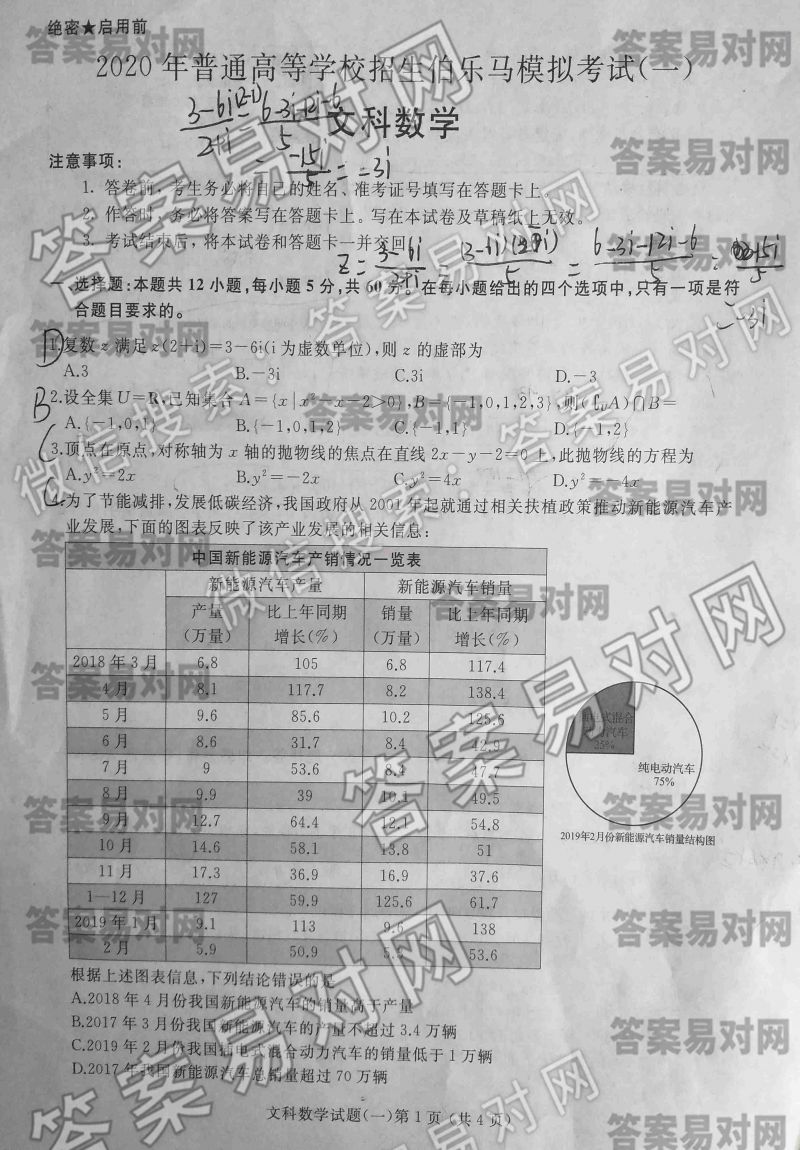 绝密★启用前
2020年普通高等学校招生伯乐马模拟考试(一)
文科数学
注意事项:
1. 答卷前,考生务必将自己的姓名、准考证号填写在答题卡上。
2. 作答时,务必将答案写在答题卡上。写在本试卷及草稿纸上无效。
3. 考试结束后,将本试卷和答题卡一并交回。
一、选择题:本题共12小题,每小题5分,共60分。在每小题给出的四个选项中,只有一项是符
合题目要求的。
D 1.复数z满足z(2+i)=3-6i(i为虚数单位),则z的虚部为
A.3 B.-3i C.3i D.-3
B 2.设全集U=R,已知集合A={x|x²-x-2>0},B={-1,0,1,2,3},则(∁UA)∩B=
A.{-1,0,1} B.{-1,0,1,2} C.{-1,1} D.{-1,2}
C 3.顶点在原点,对称轴为x轴的抛物线的焦点在直线2x-y-2=0上,此抛物线的方程为
A.y²=2x B.y²=-2x C.y²=4x D.y²=-4x
C 4.为了节能减排,发展低碳经济,我国政府从2001年起就通过相关扶植政策推动新能源汽车产
业发展,下面的图表反映了该产业发展的相关信息:
中国新能源汽车产销情况一览表
新能源汽车产量 新能源汽车销量
产量(万量) 比上年同期增长(%) 销量(万量) 比上年同期增长(%)
2018年3月 6.8 105 6.8 117.4
4月 8.1 117.7 8.2 138.4
5月 9.6 85.6 10.2 125.6
6月 8.6 31.7 8.4 42.9
7月 9 53.6 8.4 47.7
8月 9.9 39 10.1 49.5
9月 12.7 64.4 12.1 54.8
10月 14.6 58.1 13.8 51
11月 17.3 36.9 16.9 37.6
1—12月 127 59.9 125.6 61.7
2019年1月 9.1 113 9.6 138
2月 5.9 50.9 5.3 53.6
插电式混合
动力汽车
25%
纯电动汽车
75%
2019年2月份新能源汽车销量结构图
根据上述图表信息,下列结论错误的是
A.2018年4月份我国新能源汽车的销量高于产量
B.2017年3月份我国新能源汽车的产量不超过3.4万辆
C.2019年2月份我国插电式混合动力汽车的销量低于1万辆
D.2017年我国新能源汽车总销量超过70万辆
文科数学试题(一)第1页(共4页)
答案易对网
微信搜索:答案易对网